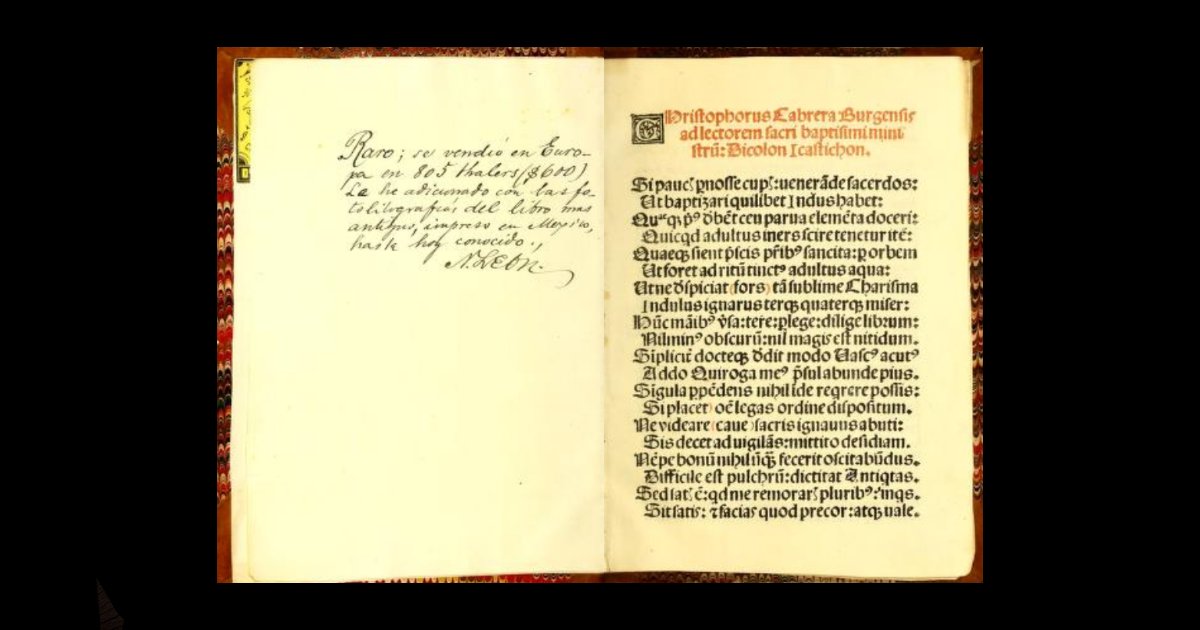 Raro; se vendió en Euro-
pa en 805 thalers ($600)
La he adicionado con las fo-
tolitografías del libro mas
antiguo, impreso en Mexico,
hasta hoy conocido.,
N. LEON.
Christophorus Cabrera Burgensis
ad lectorem sacri baptismi mini
strū: Dicolon Icastichon.
Si paucꝭ p̱nosse cupꝭ: uenerāde sacerdos:
Ut baptizari quilibet Indus habet:
Quęqꝫ pꝰ dn̄t ceu parua elemēta doceri:
Quicqd adultus iners scire tenetur itē:
Quaeqꝫ sient p̄scis pr̄ibꝰ sancita: ꝑ orbem
Ut foret ad ritū tinctꝰ adultus aqua:
Ut ne dspiciat (fors) tā sublime Charisma
Indulus ignarus terqꝫ quaterqꝫ miser:
Hūc māibꝰ v̄sa: tere: ꝑlege: dilige librum:
Nil minꝰ obscurū: nil magis est nitidum.
Simplicit̄ docteqꝫ ddit modo Uascꝰ acutꝰ
Addo Quiroga meꝰ p̄sul abunde pius.
Sīgula ꝑpēdens nihil īde reqrere possis:
Si placet) oē legas ordine dispositum.
Ne videare (caue) sacris ignauus abuti:
Sis decet ad uigilās: mittito desidiam.
Nēpe bonū nihil ūqꝫ̄ fecerit oscitabūdus.
Difficile est pulchrū: dictitat Antiqtas.
Sed iatꝭ ē: qd me remorarꝭ pluribꝰ: inqs.
Sit satis: ⁊ facias quod precor: atqꝫ uale.